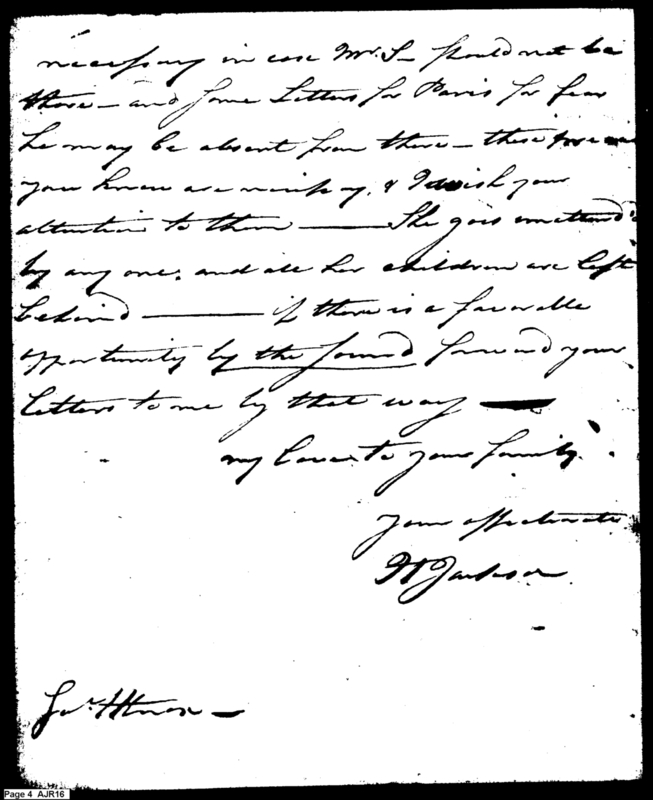 necessary in case Mr. S— should not be
there — and some Letters for Paris for fear
he may be absent from there — these
you know are necessary, & I wish your
attention to them —— She goes unattend'd
by any one, and all her children are left
behind —— if there is a favorable
opportunity by the sound forward your
letters to me by that way —
my Love to your family.
your affectionate
H Jackson
HKnox —
Page 4 AJR16